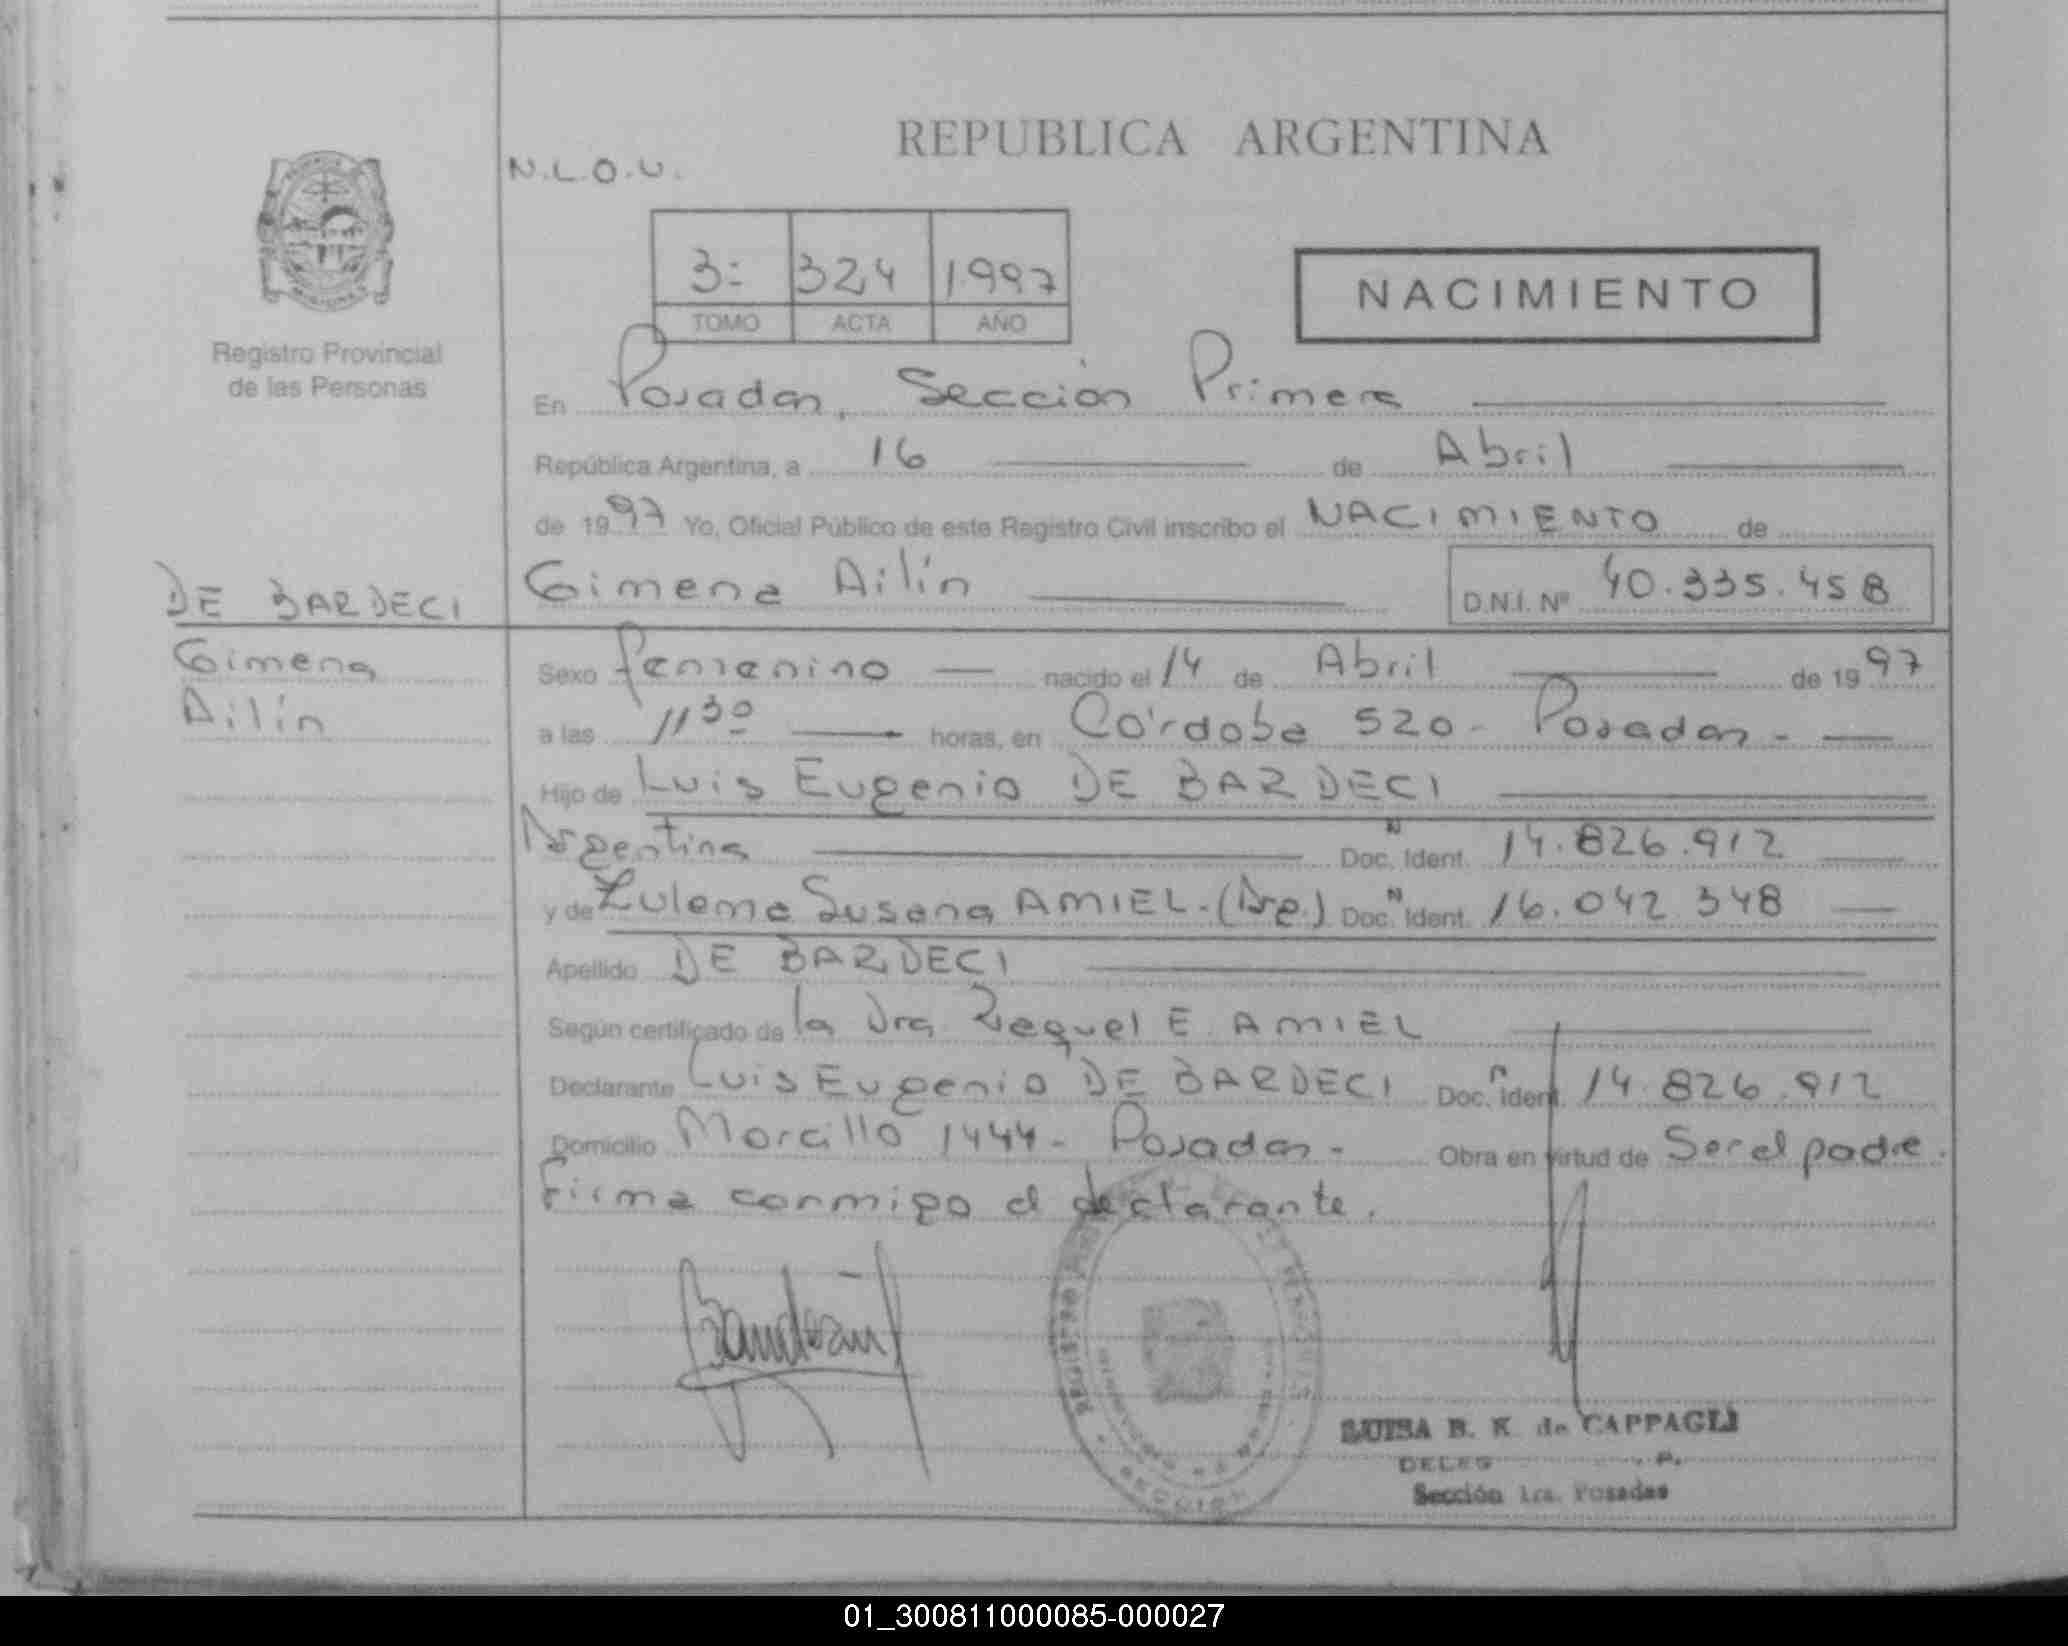 REPUBLICA ARGENTINA
N.L.O.U.
3= 324 1.997
TOMO ACTA AÑO
NACIMIENTO
Registro Provincial
de las Personas
En Posadas, Sección Primera
República Argentina, a 16 de Abril
de 1997 Yo, Oficial Público de este Registro Civil inscribo el NACIMIENTO de
Gimena Ailín D.N.I. Nº 40.335.458
DE BARDECI
Gimena
Ailín
Sexo femenino nacido el 14 de Abril de 1997
a las 11 30 horas, en Córdoba 520 - Posadas -
Hijo de Luis Eugenio DE BARDECI
Argentina Doc. N Ident. 14.826.912
y de Zulema Susana AMIEL. (Arg.) Doc. N Ident. 16.042.348
Apellido DE BARDECI
Según certificado de la Dra Raquel E. AMIEL
Declarante Luis Eugenio DE BARDECI Doc. n Ident. 14.826.912
Domicilio Morcillo 1444 - Posadas - Obra en virtud de Ser el padre.
Firma conmigo el declarante.
LUISA B. K. de CAPPAGLI
Sección 1ra. Posadas
01_300811000085-000027